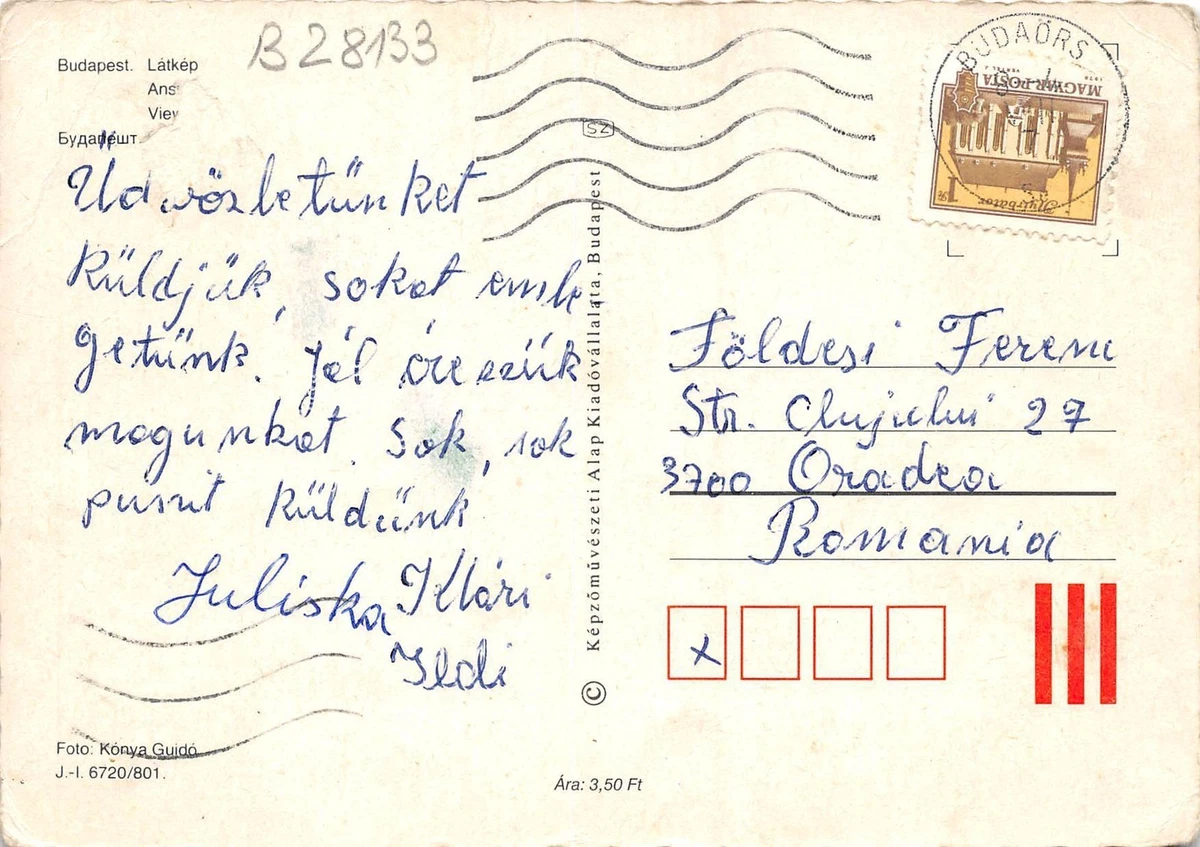 B 28133
Budapest. Látkép
Ans
Viev
Будапешт.
Üdvözletünket
küldjük, sokat emle-
getünk. Jól érezzük
magunkat. Sok, sok
puszit küldünk
Juliska Klári
Ildi
Foto: Kónya Guidó
J.-I. 6720/801.
SZ
Képzőművészeti Alap Kiadóvállalata, Budapest
©
Ára: 3,50 Ft
BUDAÖRS
MAGYAR POSTA
Nyírbátor
1
Földesi Ferenc
Str. Clujului 27
3700 Oradea
Romania
x